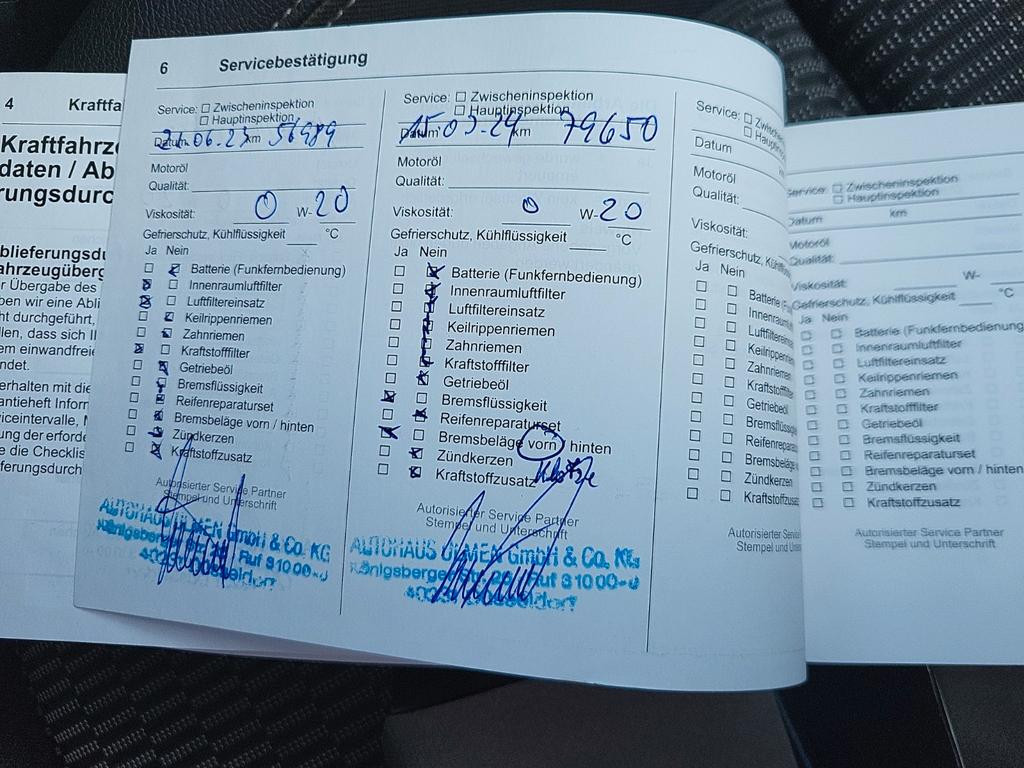 4 Kraftfa
Kraftfahrze
daten / Abl
rungsdurc
blieferungsdu
ahrzeugüberg
r Übergabe des
ben wir eine Abli
ht durchgeführt,
llen, dass sich Ih
em einwandfreie
ndet.
erhalten mit die
antieheft Inform
viceintervalle,
ung der erforde
e die Checklis
ferungsdurch
6 Servicebestätigung
Service: ☐ Zwischeninspektion
☐ Hauptinspektion
Datum 21.06.23 km 56989
Motoröl
Qualität:
Viskosität: 0 W-20
Gefrierschutz, Kühlflüssigkeit °C
Ja Nein
Batterie (Funkfernbedienung)
Innenraumluftfilter
Luftfiltereinsatz
Keilrippenriemen
Zahnriemen
Kraftstofffilter
Getriebeöl
Bremsflüssigkeit
Reifenreparaturset
Bremsbeläge vorn / hinten
Zündkerzen
Kraftstoffzusatz
Autorisierter Service Partner
Stempel und Unterschrift
AUTOHAUS ULMEN GmbH & Co. KG
Königsberger Ruf 9 10 00-0
Düsseldorf
Service: ☐ Zwischeninspektion
☐ Hauptinspektion
Datum 15.03.24 km 79650
Motoröl
Qualität:
Viskosität: 0 W-20
Gefrierschutz, Kühlflüssigkeit °C
Ja Nein
Batterie (Funkfernbedienung)
Innenraumluftfilter
Luftfiltereinsatz
Keilrippenriemen
Zahnriemen
Kraftstofffilter
Getriebeöl
Bremsflüssigkeit
Reifenreparaturset
Bremsbeläge vorn / hinten
Zündkerzen Klötze
Kraftstoffzusatz
Autorisierter Service Partner
Stempel und Unterschrift
AUTOHAUS ULMEN GmbH & Co. KG
Königsberger Str. Ruf 9 10 00-0
Düsseldorf
Service: ☐ Zwische
☐ Haupti
Datum
Motoröl
Qualität:
Viskosität:
Gefrierschutz, Kühl
Ja Nein
Batterie (F
Innenraum
Luftfiltere
Keilrippen
Zahnrieme
Kraftstofffi
Getriebeö
Bremsflüss
Reifenrepara
Bremsbeläg
Zündkerze
Kraftstoffzusa
Autorisierter Servi
Stempel und Un
Service: ☐ Zwischeninspektion
☐ Hauptinspektion
Datum km
Motoröl
Qualität:
Viskosität: W-
Gefrierschutz, Kühlflüssigkeit °C
Ja Nein
Batterie (Funkfernbedienung
Innenraumluftfilter
Luftfiltereinsatz
Keilrippenriemen
Zahnriemen
Kraftstofffilter
Getriebeöl
Bremsflüssigkeit
Reifenreparaturset
Bremsbeläge vorn / hinten
Zündkerzen
Kraftstoffzusatz
Autorisierter Service Partner
Stempel und Unterschrift